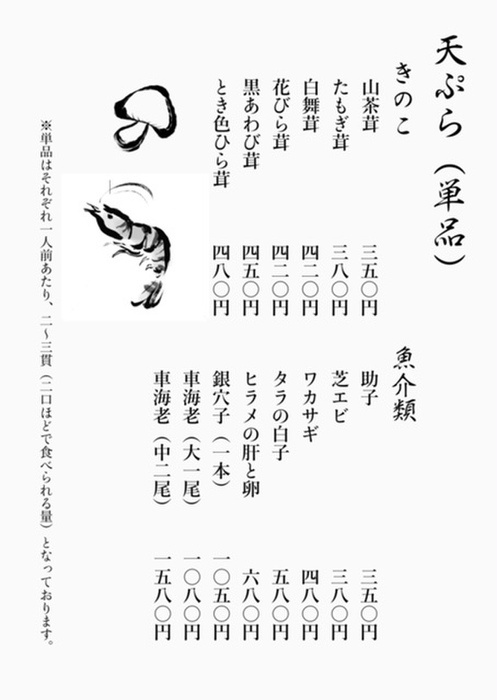 天ぷら（単品）
きのこ
山茶茸　三五〇円
たもぎ茸　三八〇円
白舞茸　四二〇円
花びら茸　四二〇円
黒あわび茸　四五〇円
とき色ひら茸　四八〇円
魚介類
助子　三五〇円
芝エビ　三八〇円
ワカサギ　四八〇円
タラの白子　五八〇円
ヒラメの肝と卵　六八〇円
銀穴子（一本）　一〇五〇円
車海老（大一尾）　一〇八〇円
車海老（中二尾）　一五八〇円
※単品はそれぞれ一人前あたり、二～三貫（二口ほどで食べられる量）となっております。